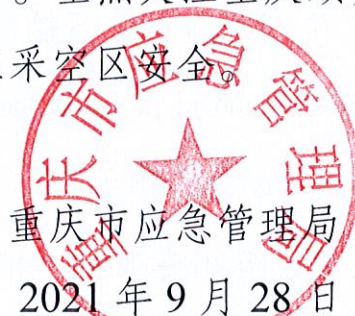 采空区安全。
重庆市应急管理局
重庆市应急管理局
2021年9月28日